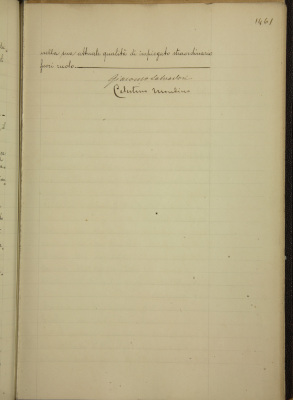 1461
nella sua attuale qualità di impiegato straordinario
fuori ruolo
Giacomo Salvadori
Celestino